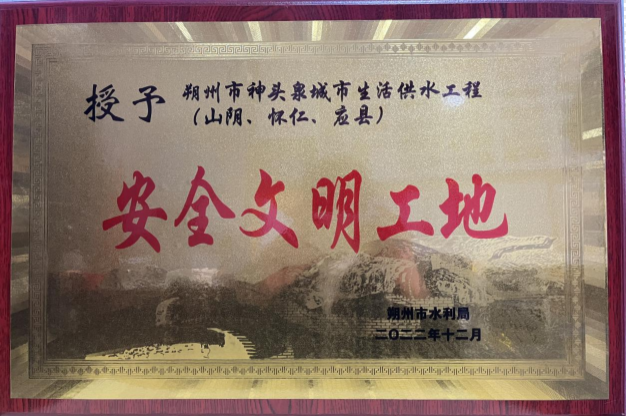 授予 朔州市神头泉城市生活供水工程
（山阴、怀仁、应县）
安全文明工地
朔州市水利局
二〇二二年十二月